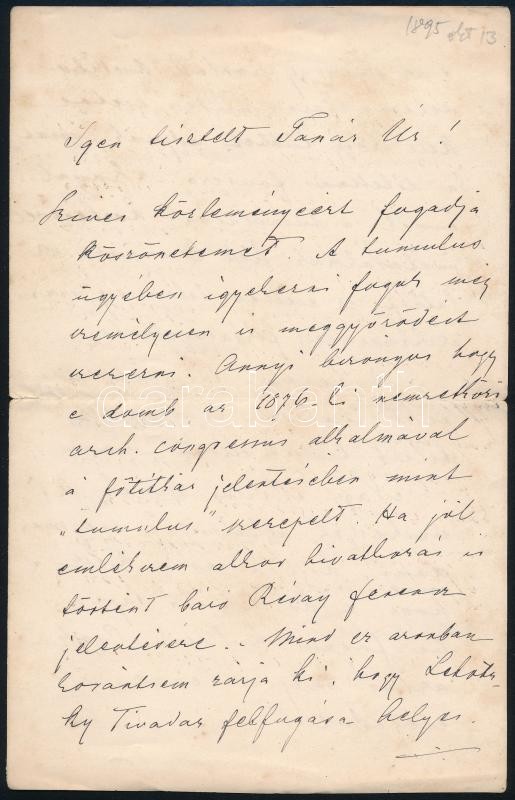 1895 okt 13.
Igen tisztelt Tanár Úr!
Szives közleményeért fogadja
köszönetemet. A tumulus
ügyében igyekezni fogok még
személyesen is meggyőződést
szerezni. Annyi bizonyos hogy
e domb az 1876 ki nemzetközi
arch. congressus alkalmával
a főtitkár jelentésében mint
"tumulus" szerepelt. Ha jól
emlékszem akkor hivatkozás is
történt báró Révay Ferencz
jelentésére.. Mind ez azonban
korántsem zárja ki, hogy Lehótz-
ky Tivadar felfogása helyes.
darabanth